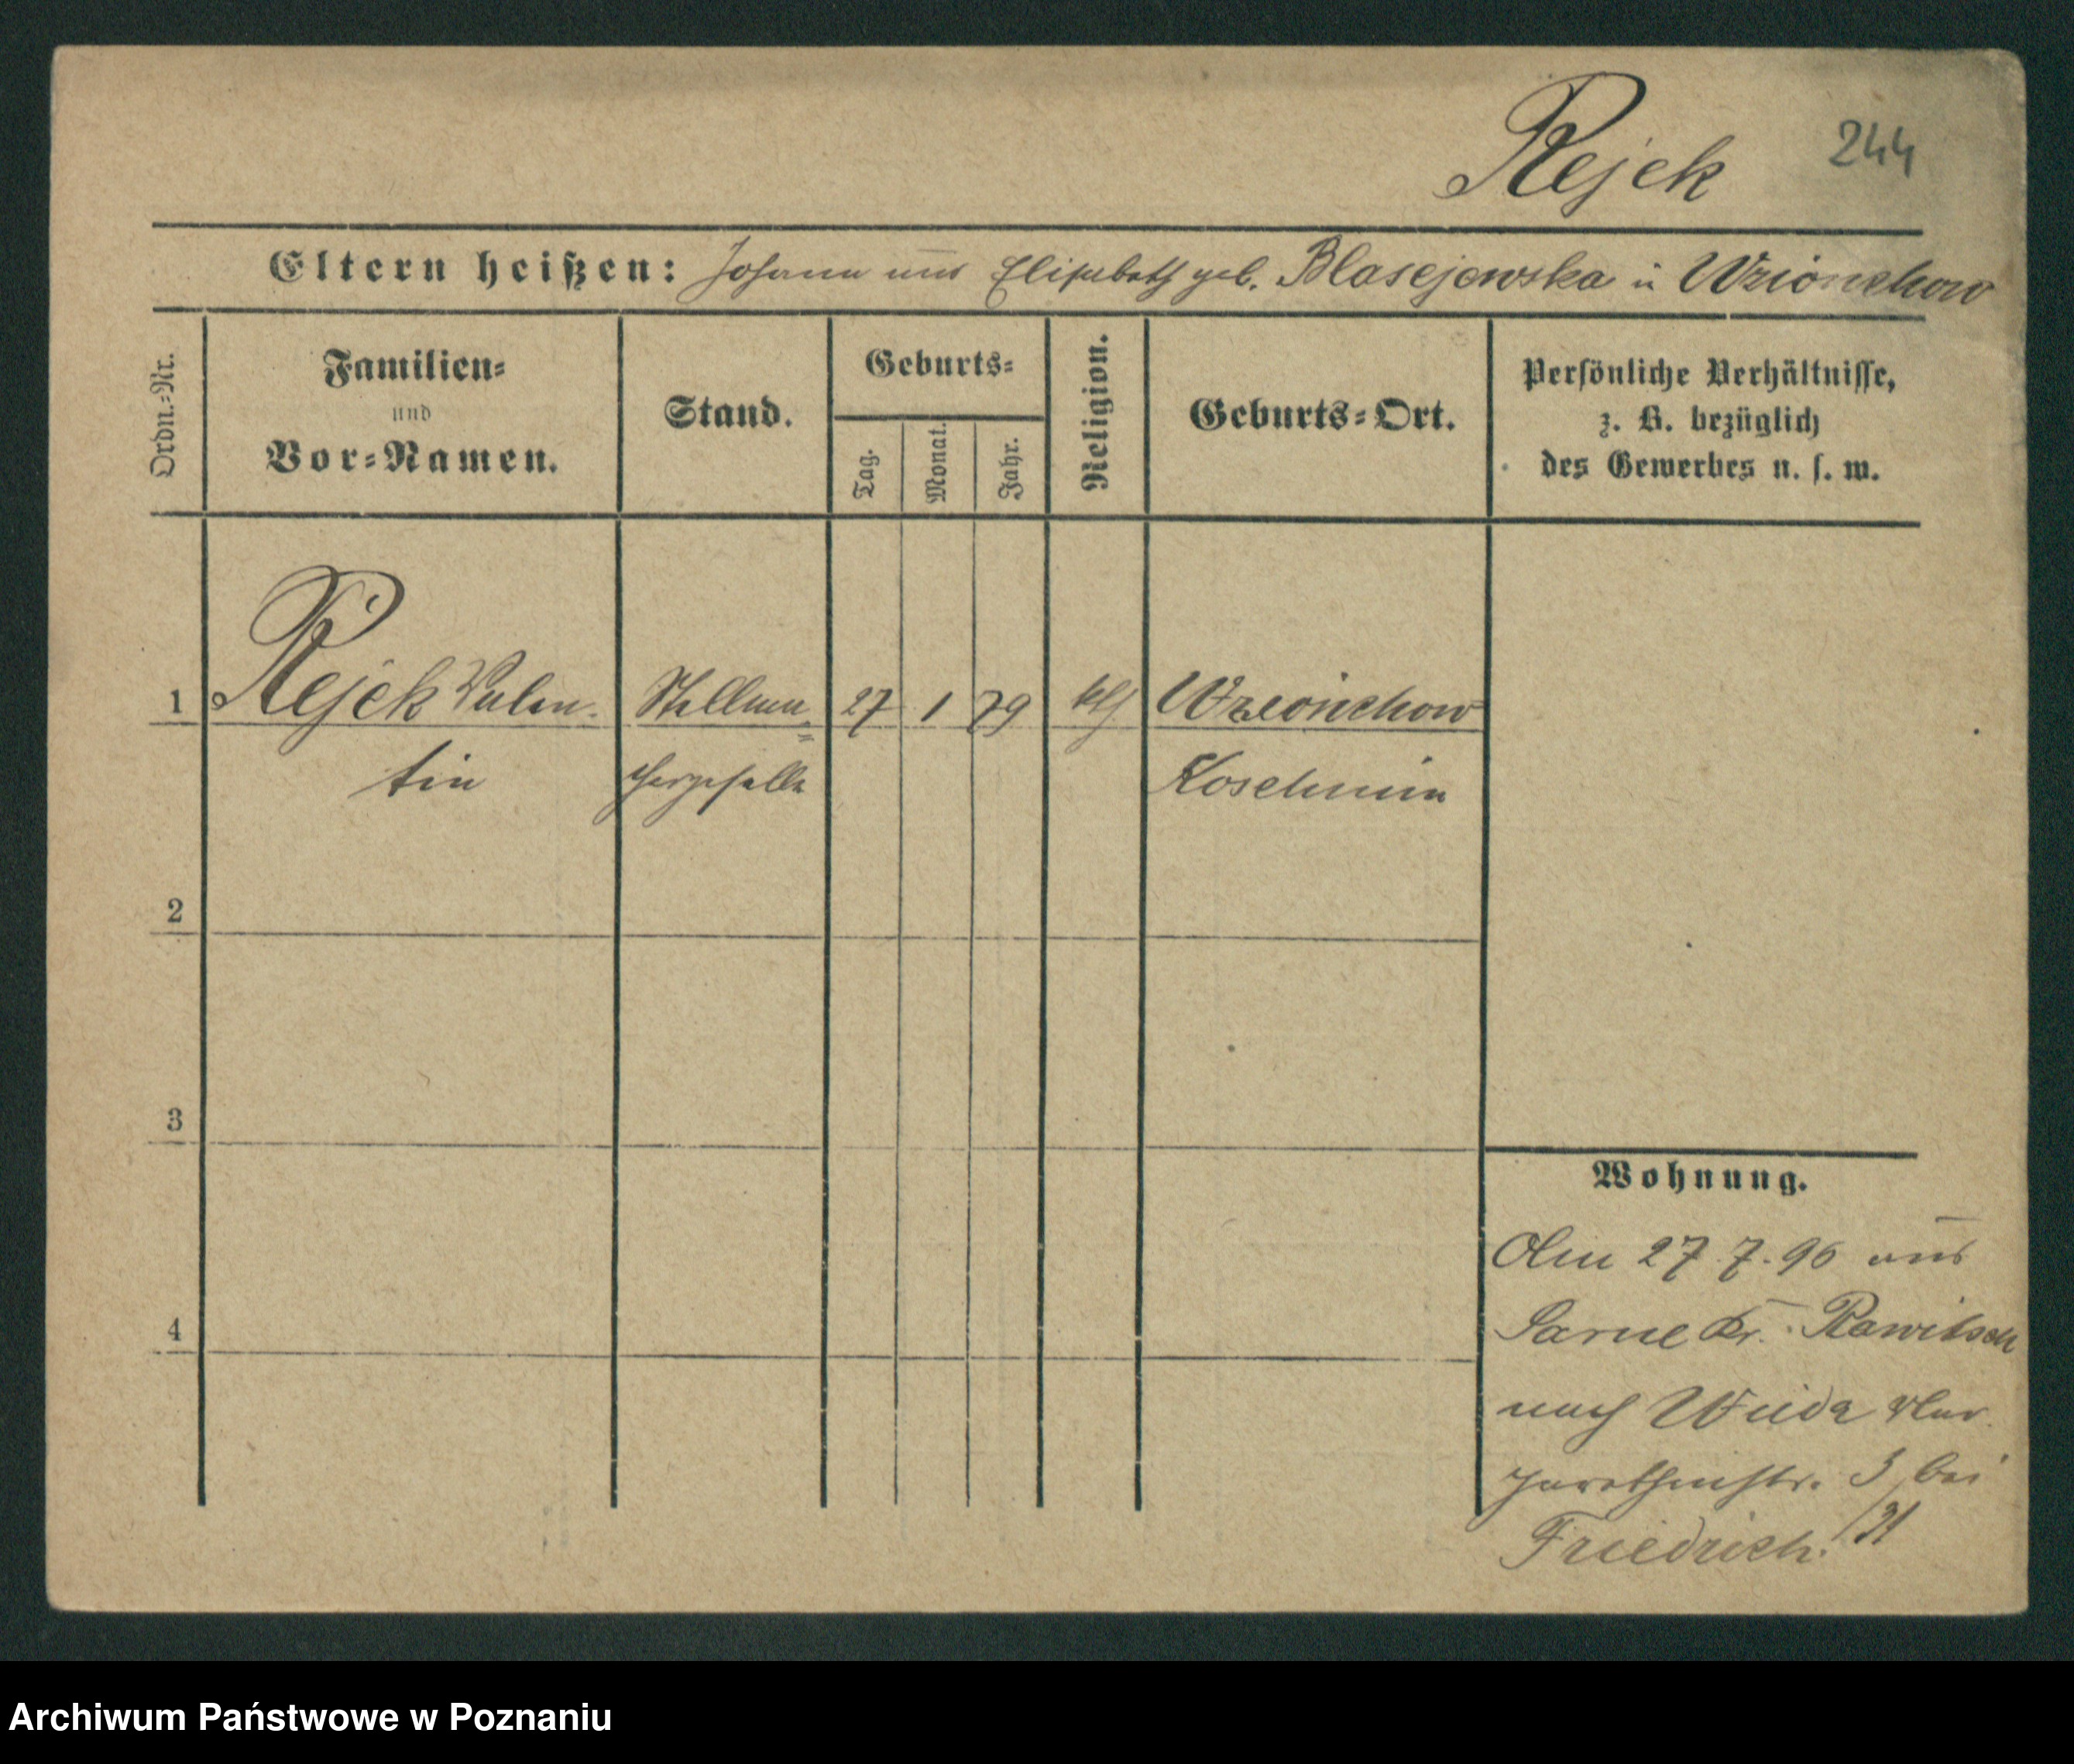 Rejek 244
Eltern heißen: Johann und Elisabeth geb. Blasejewska in Wzionchow
Ordn.-Nr.
Familien-
und
Vor-Namen.
Stand.
Geburts-
Tag.
Monat.
Jahr.
Religion.
Geburts-Ort.
Persönliche Verhältnisse,
z. B. bezüglich
des Gewerbes u. s. w.
1 Rejek Valen- Stellma= 27 1 79 kth Wzionchow
tin chergeselle Koschmin
2
3
4
Wohnung.
Am 27.7.96 aus
Sarne Kr. Rawitsch
nach Wilda
3 bei
Friedrich. /31
Archiwum Państwowe w Poznaniu